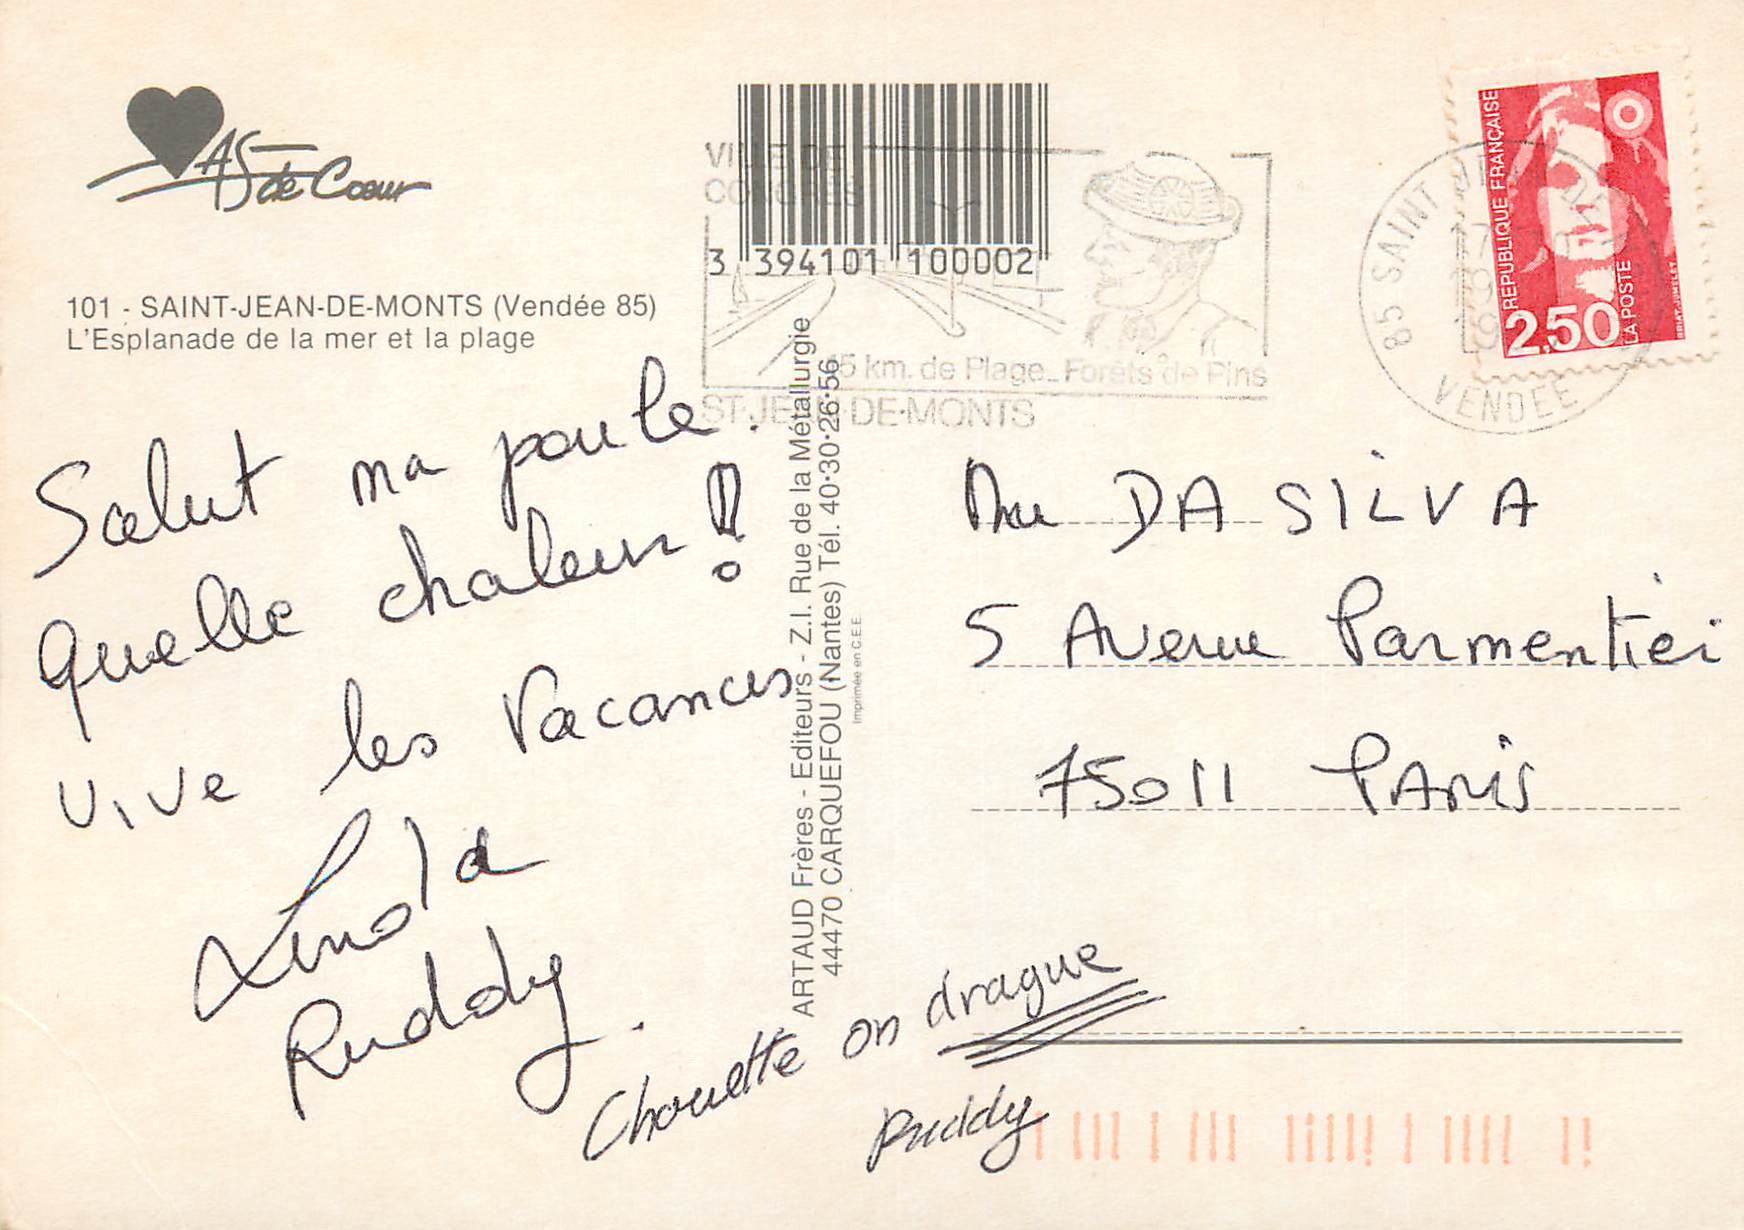 AS
de Coeur
101 - SAINT-JEAN-DE-MONTS (Vendée 85)
L'Esplanade de la mer et la plage
Salut ma poule.
Quelle chaleur !
Vive les Vacances
Linda
Ruddy.
Chouette on drague
Ruddy
3 394101 100002
VILLE DE
CONGRES
15 km. de Plage_Forêts de Pins
ST-JEAN-DE-MONTS
85 SAINT JEAN DE
VENDEE
REPUBLIQUE FRANÇAISE
2,50
LA POSTE
BRIAT-JUMELET
ARTAUD Frères - Editeurs - Z.I. Rue de la Métallurgie
44470 CARQUEFOU (Nantes) Tél. 40·30·26·56
Imprimée en C.E.E.
DA SILVA
5 Avenue Parmentier
75011 PARIS